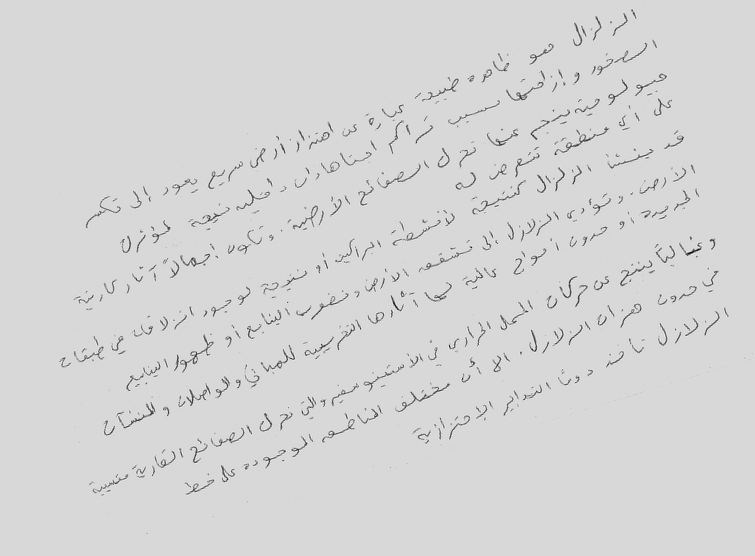 الزلزال هو ظاهرة طبيعية عبارة عن اهتزاز أرضي سريع يعود الى تكسر
الصخور وإزاحتها بسبب تراكم اجتهادات داخلية نتيجة لمؤثرات
جيولوجية ينجم عنها تحرك الصفائح الأرضية. وتكون إجمالاً آثار كارثية
على أي منطقة تتعرض له
قد ينشأ الزلزال كنتيجة لأنشطة البراكين أو نتيجة لوجود انزلاقات في طبقات
الأرض. وتؤدي الزلازل الى تشقق الأرض ونضوب الينابيع أو ظهور الينابيع
الجديدة أو حدوث أمواج عالية لها آثارها التخريبية للمباني والمواصلات والمنشآت
وغالباً ينتج عن حركات الحمل الحراري في الأستينوسفير والتي تحرك الصفائح القارية متسببة
في حدوث هزات الزلازل. الا أن مختلف المناطق الموجودة على خط
الزلازل تأخذ دوماً التدابير الإحترازية